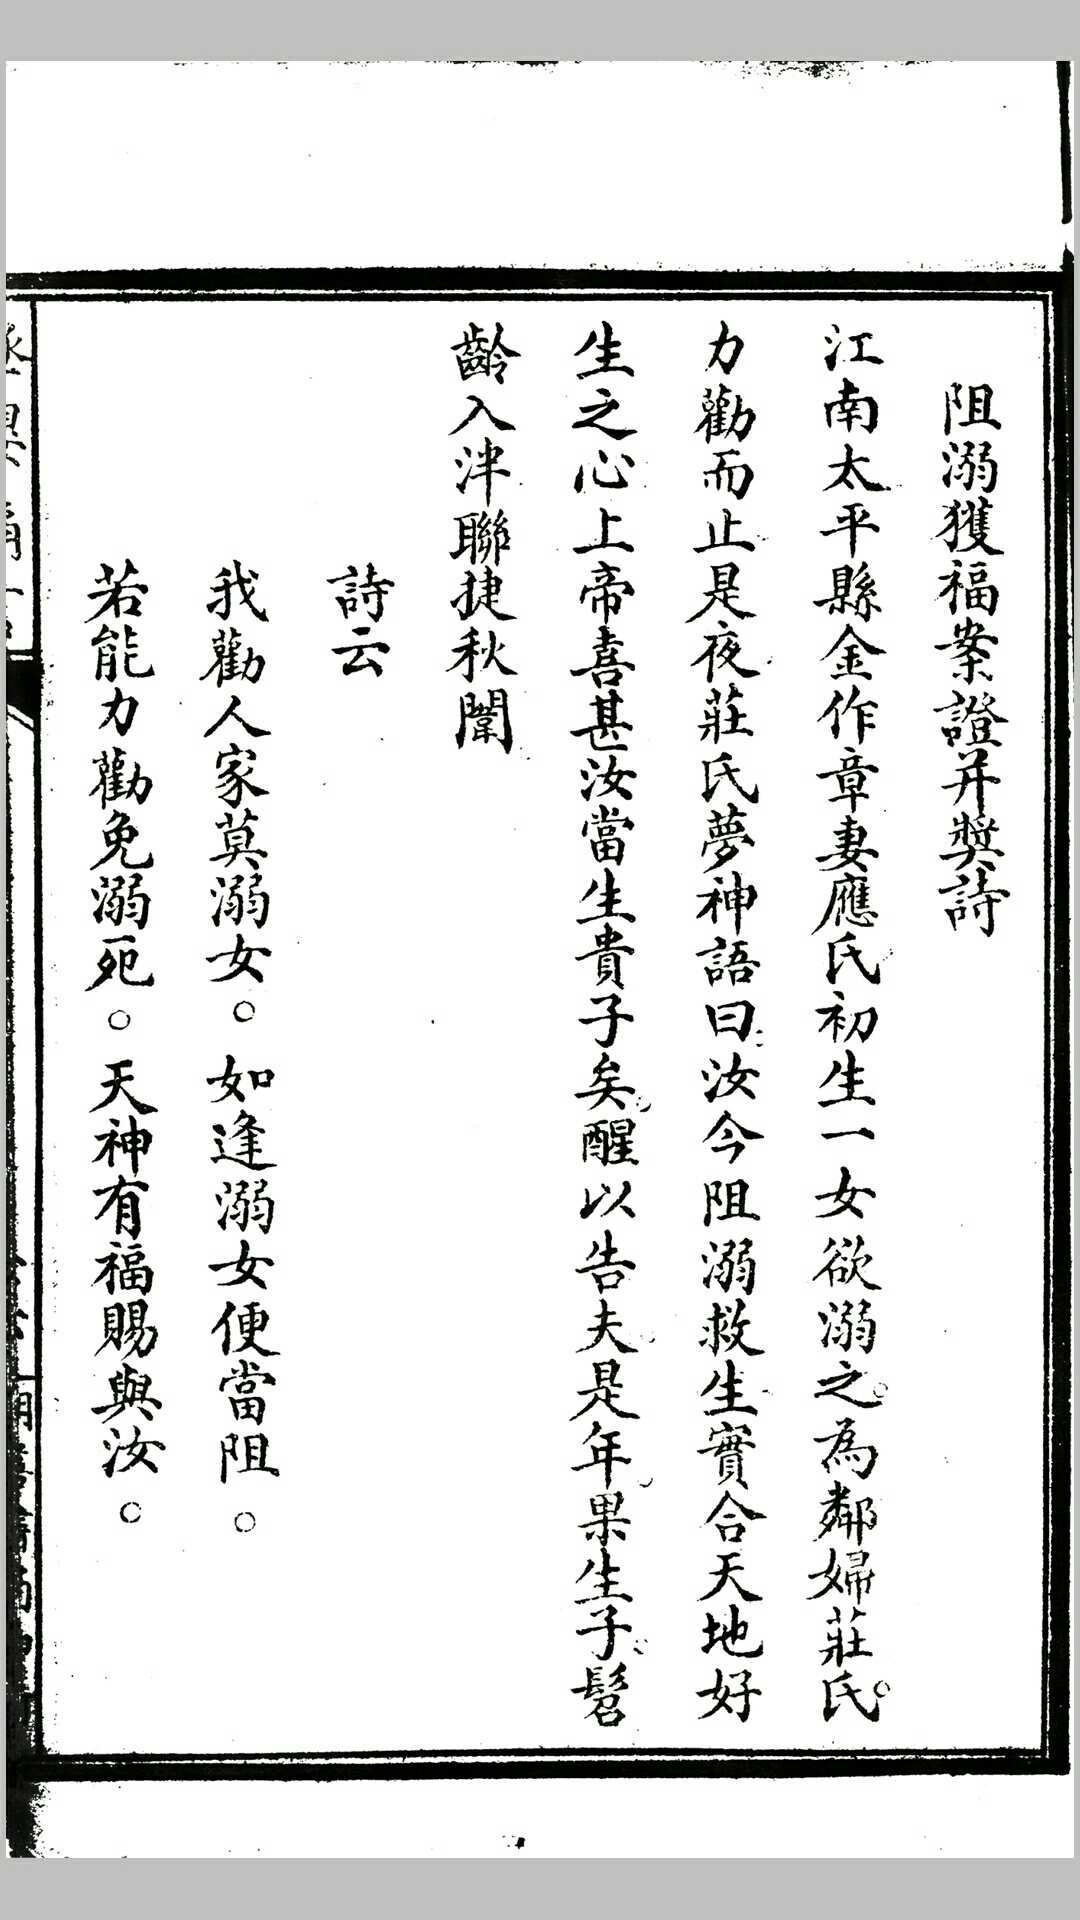 阻溺獲福案證并獎詩
江南太平縣金作章妻應氏初生一女欲溺之為鄰婦莊氏
力勸而止是夜莊氏夢神語曰汝今阻溺救生實合天地好
生之心上帝喜甚汝當生貴子矣醒以告夫是年果生子髫
齡入泮聯捷秋闈
詩云
我勸人家莫溺女。如逢溺女便當阻。
若能力勸免溺死。天神有福賜與汝。